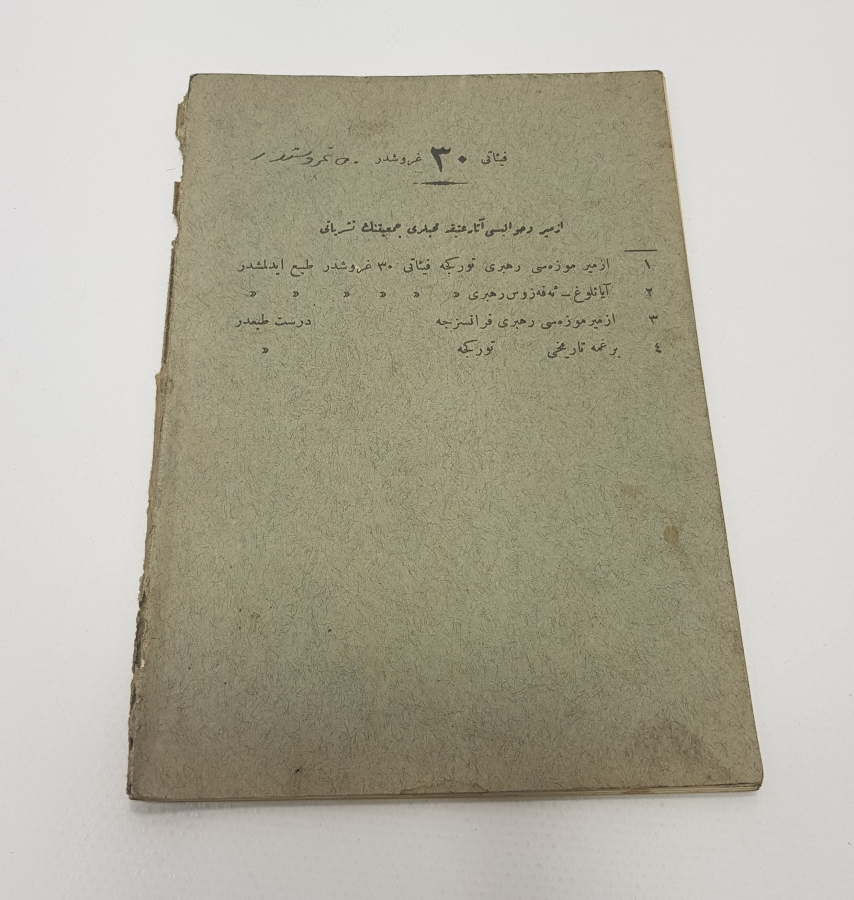 فیئاتی ۳۰ غروشدر
ازمیر وحوالیسی آثار عتیقه محبلری جمعیتنك نشریاتی
۱ ازمیر موزه‌سی رهبری تورکجه فیئاتی ۳۰ غروشدر طبع ایدلمشدر
۲ آیاثلوغ ـ ئه‌فه‌زوس رهبری » » » » » »
۳ ازمیر موزه‌سی رهبری فرانسزجه درست طبعدر
٤ برغمه تاریخی تورکجه »